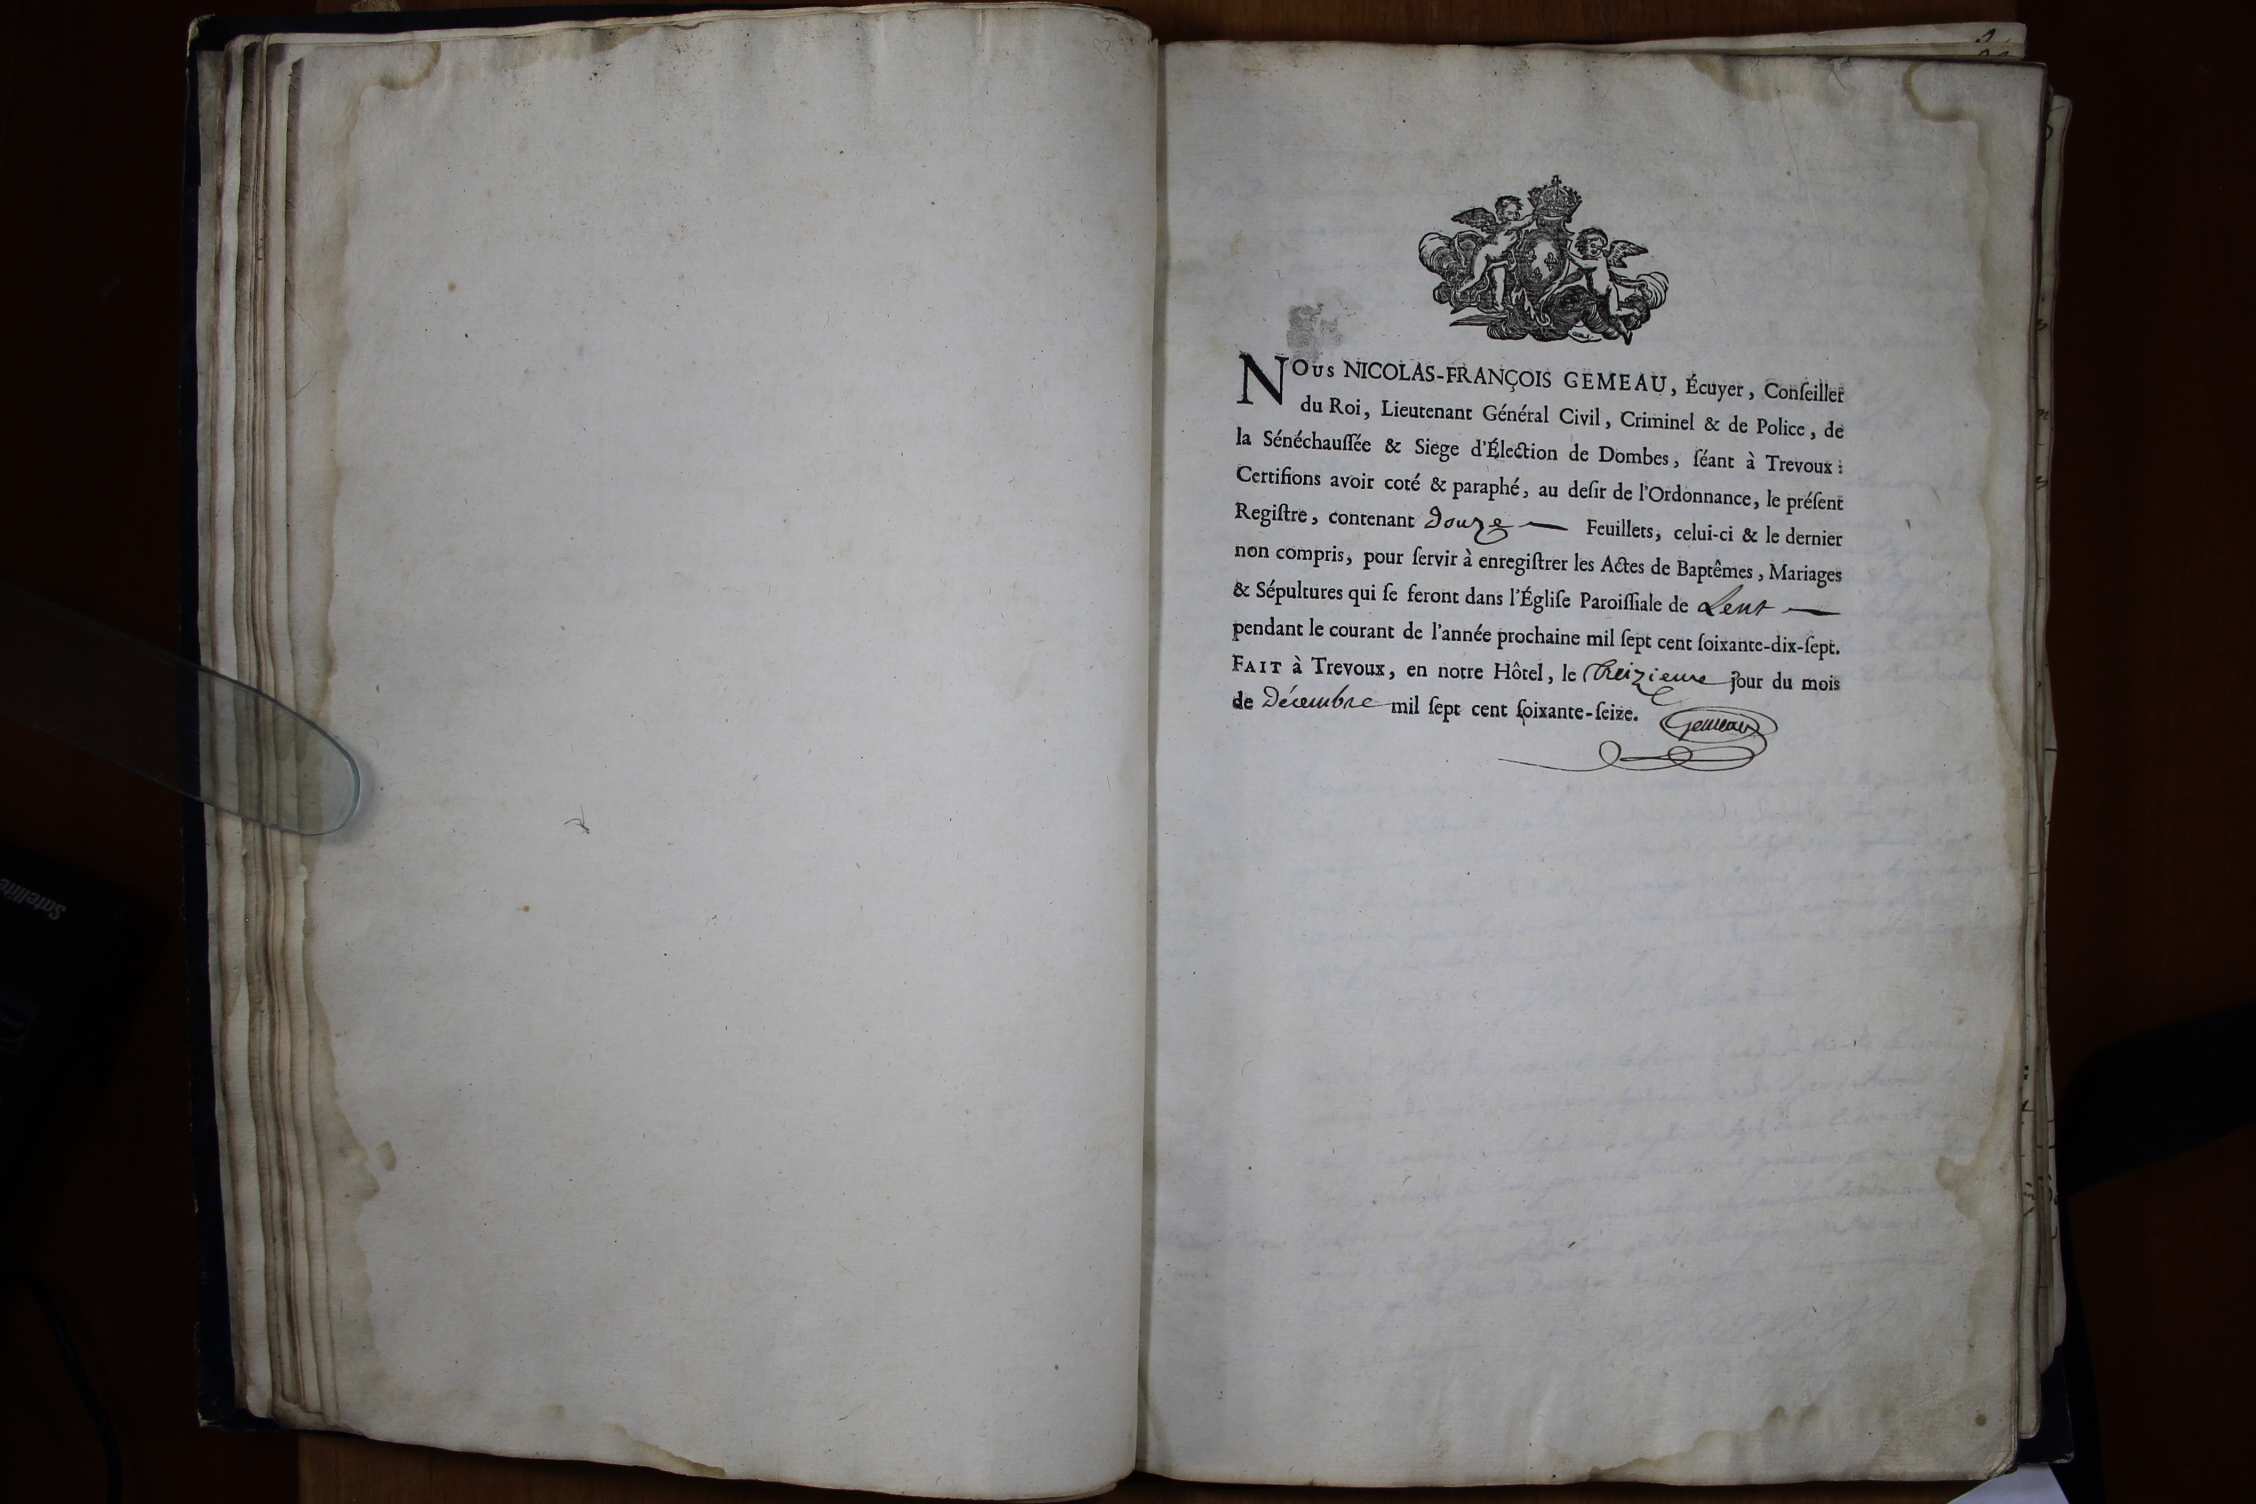 NOus NICOLAS-FRANÇOIS GEMEAU, Écuyer, Conſeiller
du Roi, Lieutenant Général Civil, Criminel & de Police, de
la Sénéchauſſée & Siege d'Élection de Dombes, ſéant à Trevoux :
Certifions avoir coté & paraphé, au deſir de l'Ordonnance, le préſent
Regiſtre, contenant douze — Feuillets, celui-ci & le dernier
non compris, pour ſervir à enregiſtrer les Actes de Baptêmes, Mariages
& Sépultures qui ſe feront dans l'Égliſe Paroiſſiale de Lent —
pendant le courant de l'année prochaine mil ſept cent ſoixante-dix-ſept.
FAIT à Trevoux, en notre Hôtel, le treizieme jour du mois
de Décembre mil ſept cent ſoixante-ſeize. Gemeau
Satellite